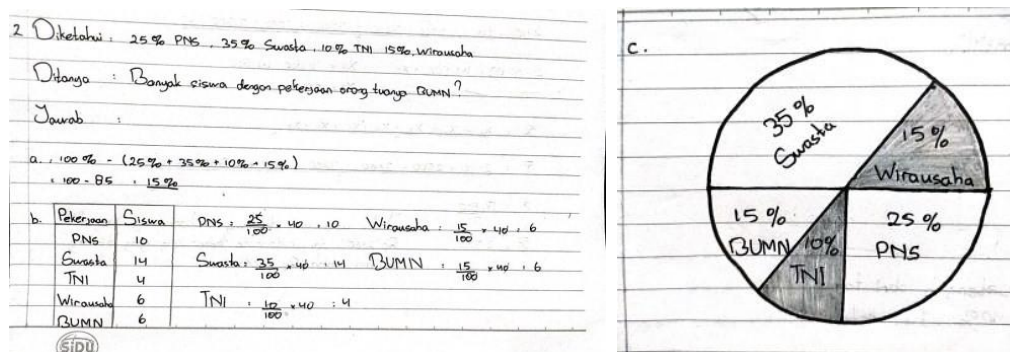 2 Diketahui : 25% PNS, 35% Swasta, 10% TNI 15%, Wirausaha
Ditanya : Banyak siswa dengan pekerjaan orang tuanya BUMN?
Jawab :
a. . 100% - (25% + 35% + 10% + 15%)
= 100 - 85 = 15%
b. Pekerjaan Siswa
PNS 10
Swasta 14
TNI 4
Wirausaha 6
BUMN 6
PNS = 25/100 × 40 = 10 Wirausaha = 15/100 × 40 = 6
Swasta = 35/100 × 40 = 14 BUMN = 15/100 × 40 = 6
TNI = 10/100 × 40 = 4
SiDU
c.
35%
Swasta
15%
Wirausaha
15%
BUMN
10%
TNI
25%
PNS